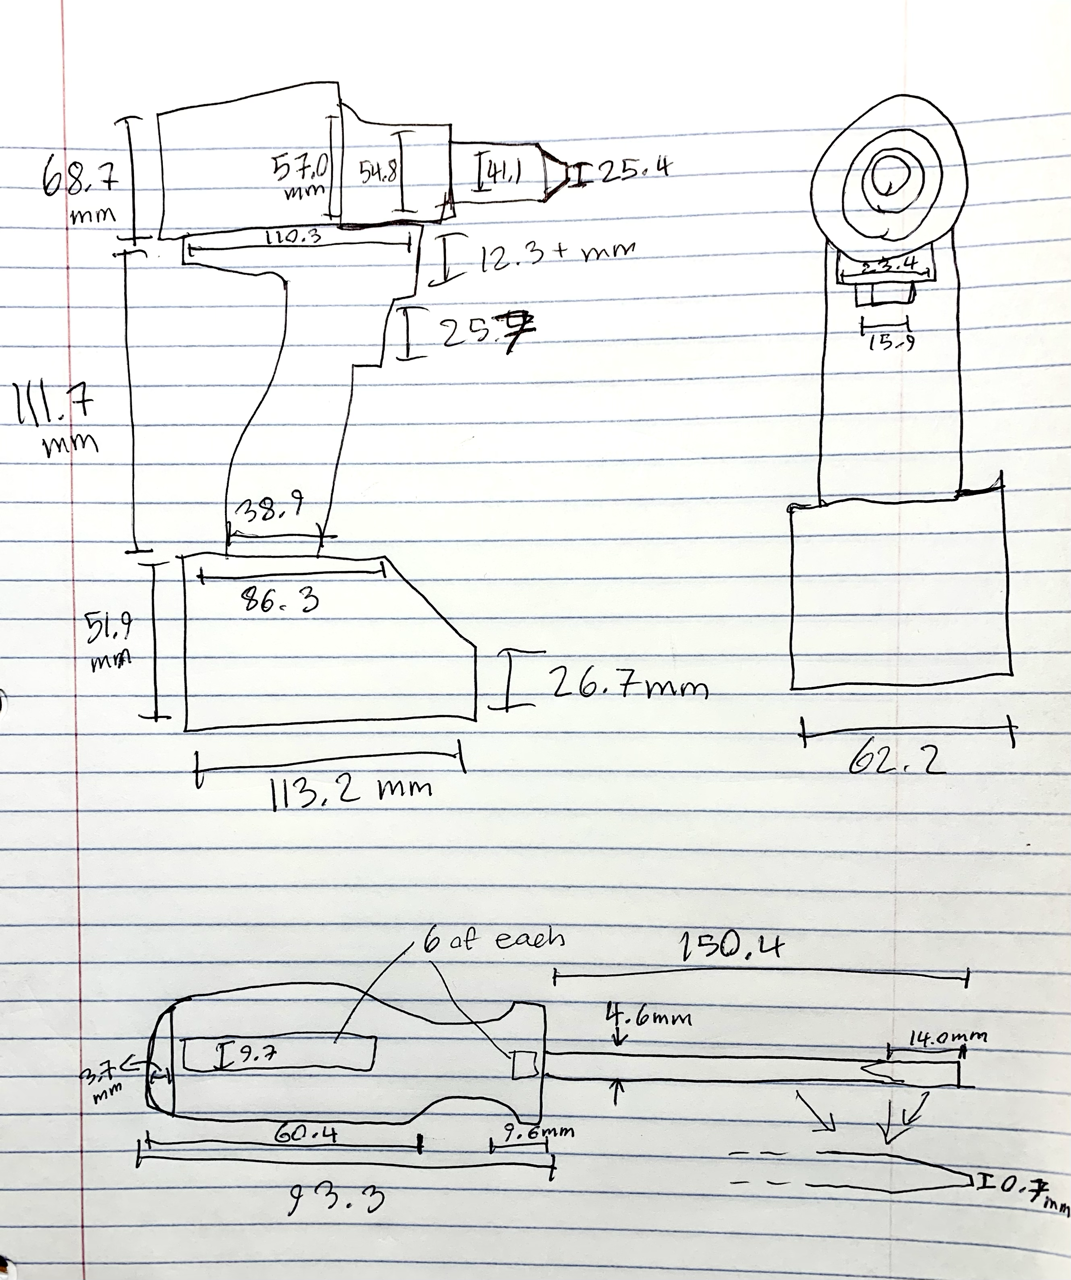 68.7
mm
57.0
mm
54.8
41.1
25.4
110.3
12.3 + mm
23.4
15.9
111.7
mm
38.9
86.3
51.9
mm
26.7mm
113.2 mm
62.2
6 of each
150.4
4.6mm
14.0mm
9.7
3.7
mm
60.4
9.6mm
93.3
0.7mm